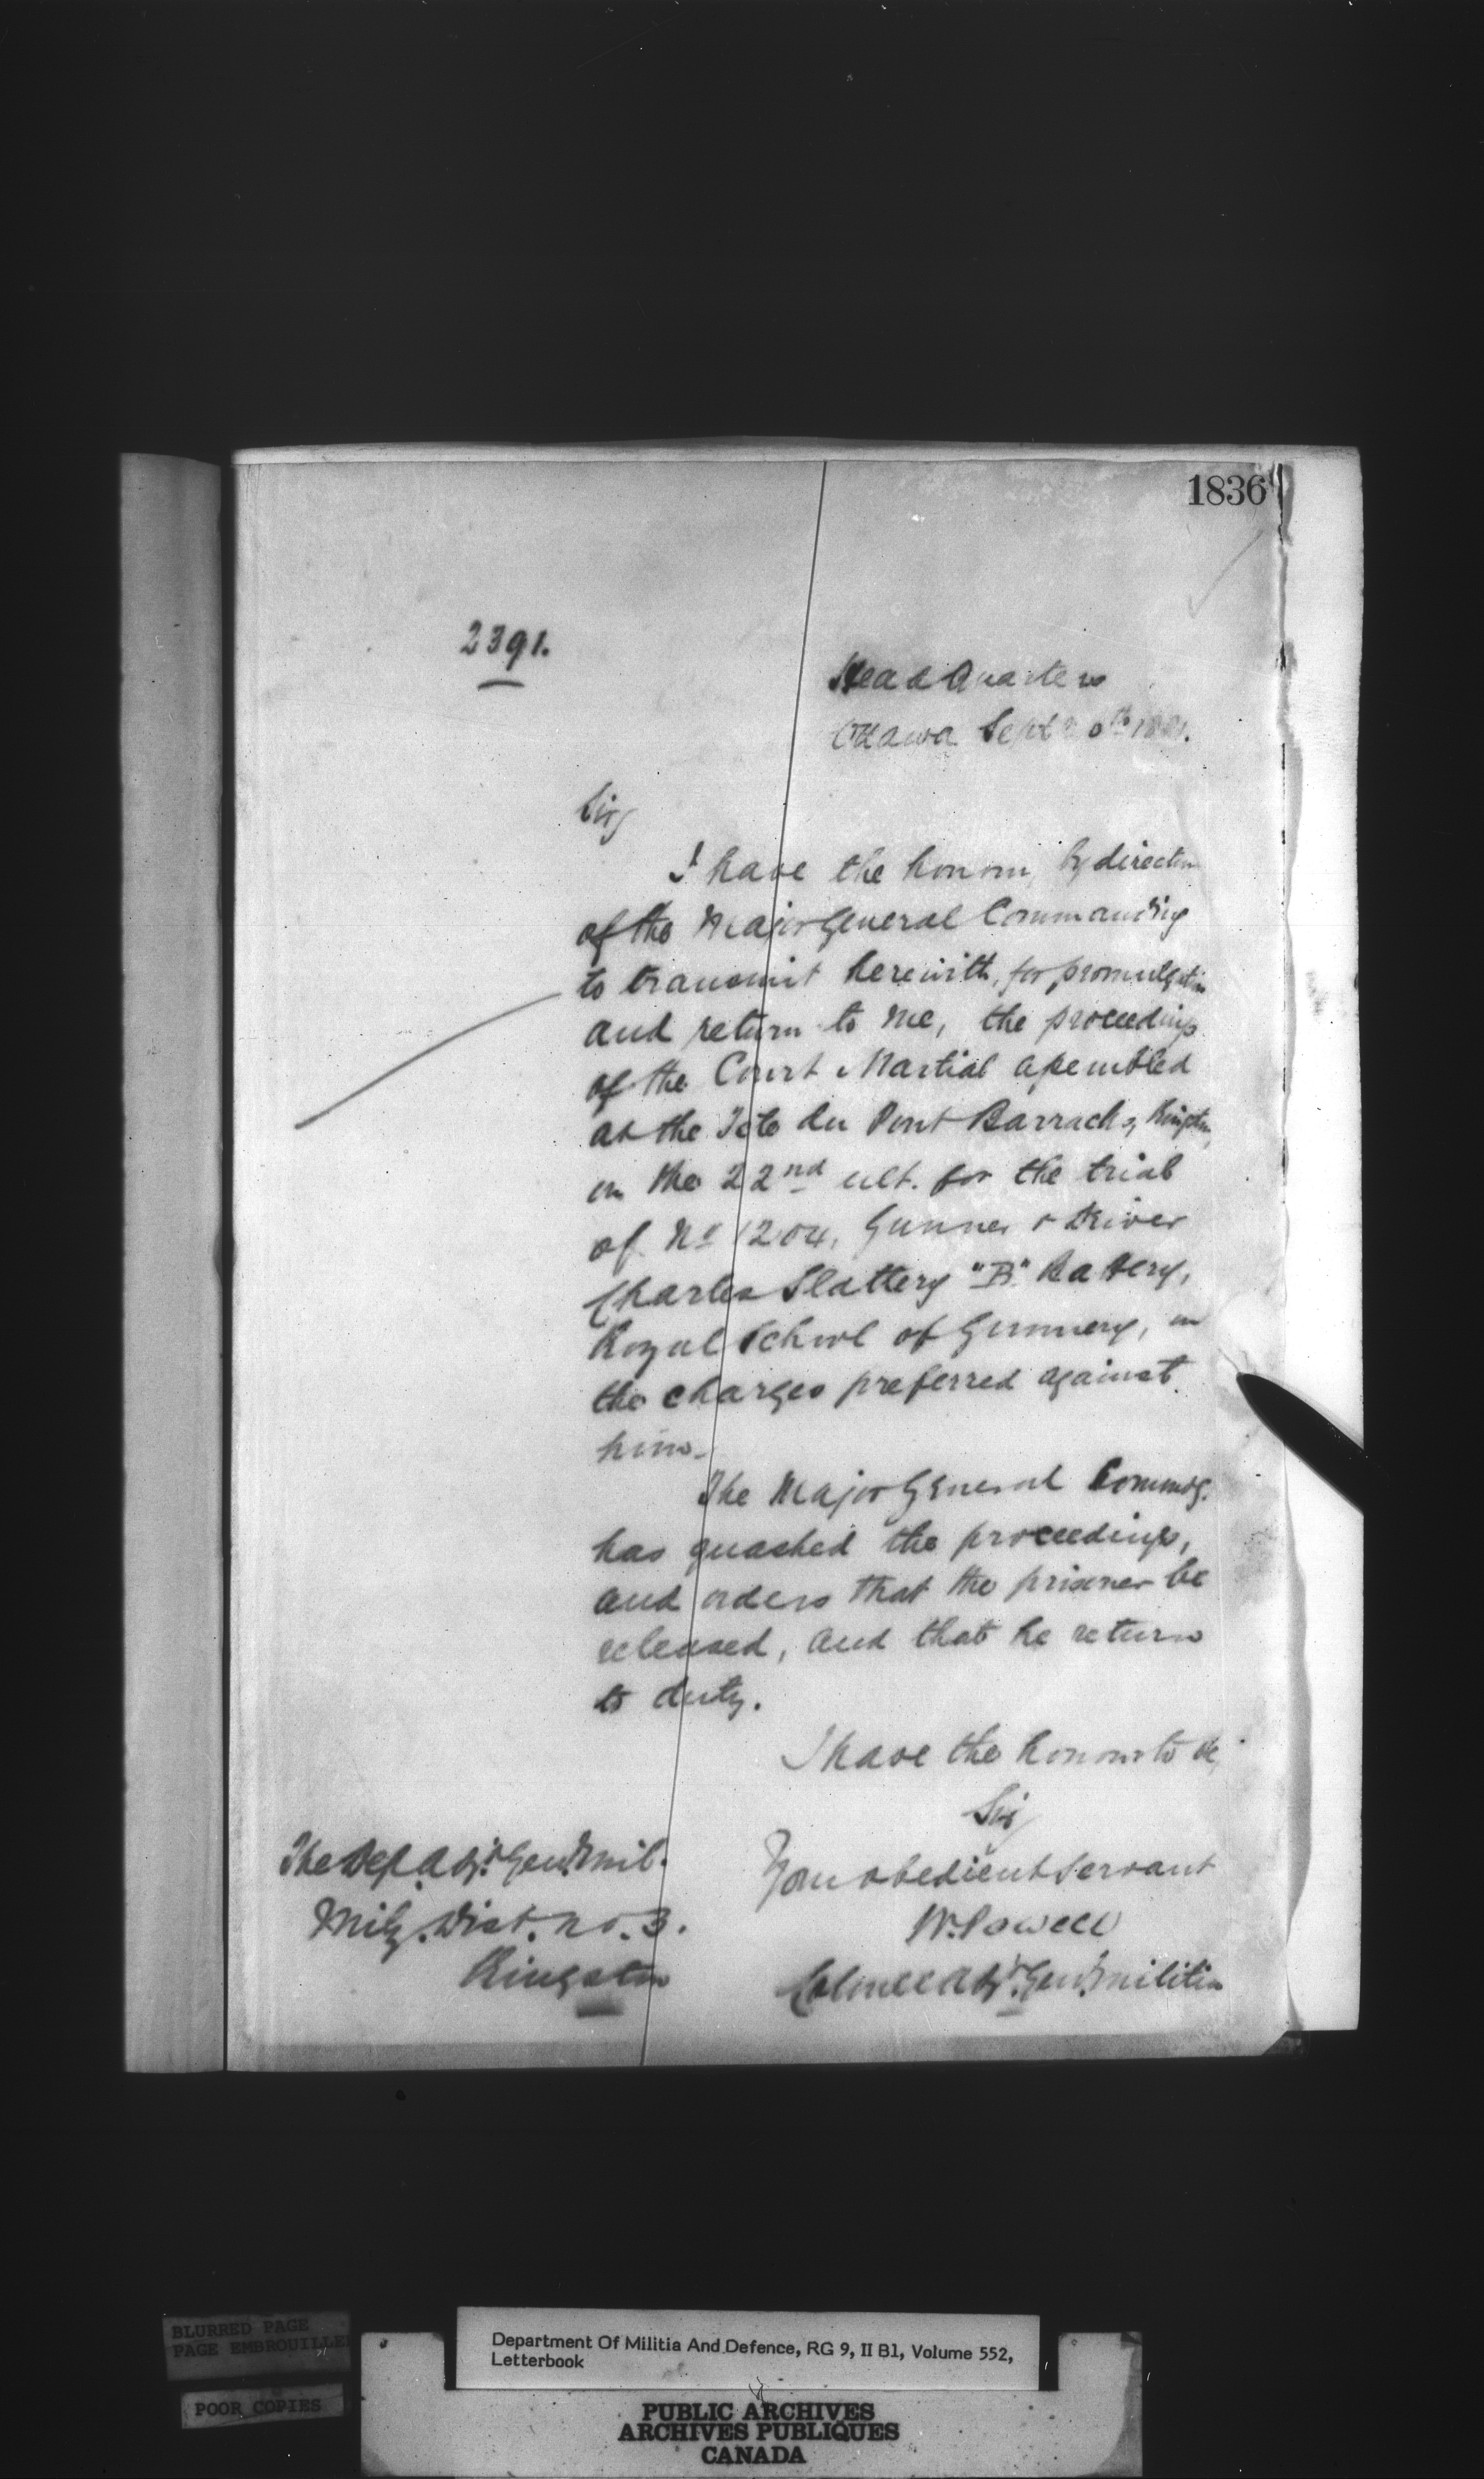 1836
2391.
Head Quarters
Ottawa Sept 20th 1881.
Sir,
I have the honour, by direction
of the Major General Commanding
to transmit herewith, for promulgation
and return to me, the proceedings
of the Court Martial assembled
at the Tete du Pont Barracks, Kingston,
on the 22nd ult. for the trial
of No 1204, Gunner & Driver
Charles Slattery "B" Battery,
Royal School of Gunnery, on
the charges preferred against
him.
The Major General Commdg.
has quashed the proceedings,
and orders that the prisoner be
released, and that he return
to duty.
I have the honour to be,
Sir,
Your obedient servant
W. Powell
Colonel Adjt. Genl. Militia
The Dep. Adjt. Genl. Mil.
Mily. Dist. No. 3.
Kingston
BLURRED PAGE
PAGE EMBROUILLEE
POOR COPIES
Department Of Militia And Defence, RG 9, II B1, Volume 552,
Letterbook
PUBLIC ARCHIVES
ARCHIVES PUBLIQUES
CANADA